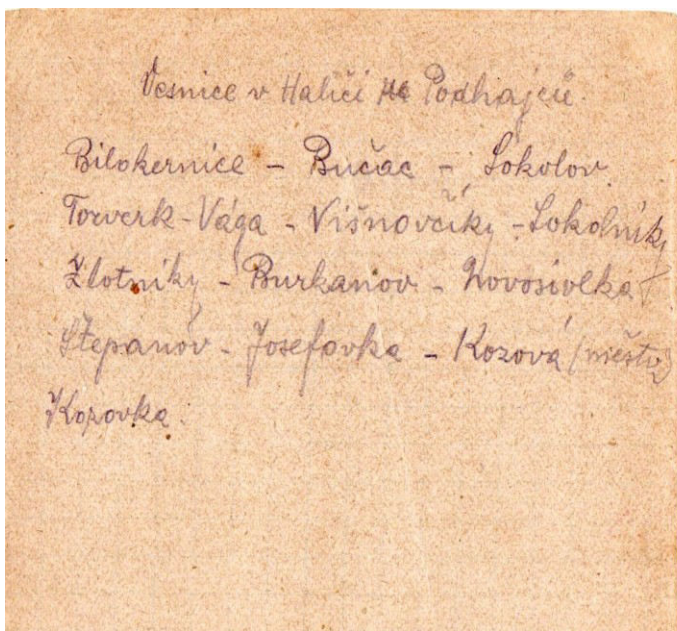 Vesnice v Haliči Podhajců
Bilokernice - Bučac - Sokolov
Torverk - Vága - Višnovčiky - Sokolníky
Zlotniky - Burkanov - Novosiolka
Štepanóv - Josefovka - Kozová (město)
Kozovka.